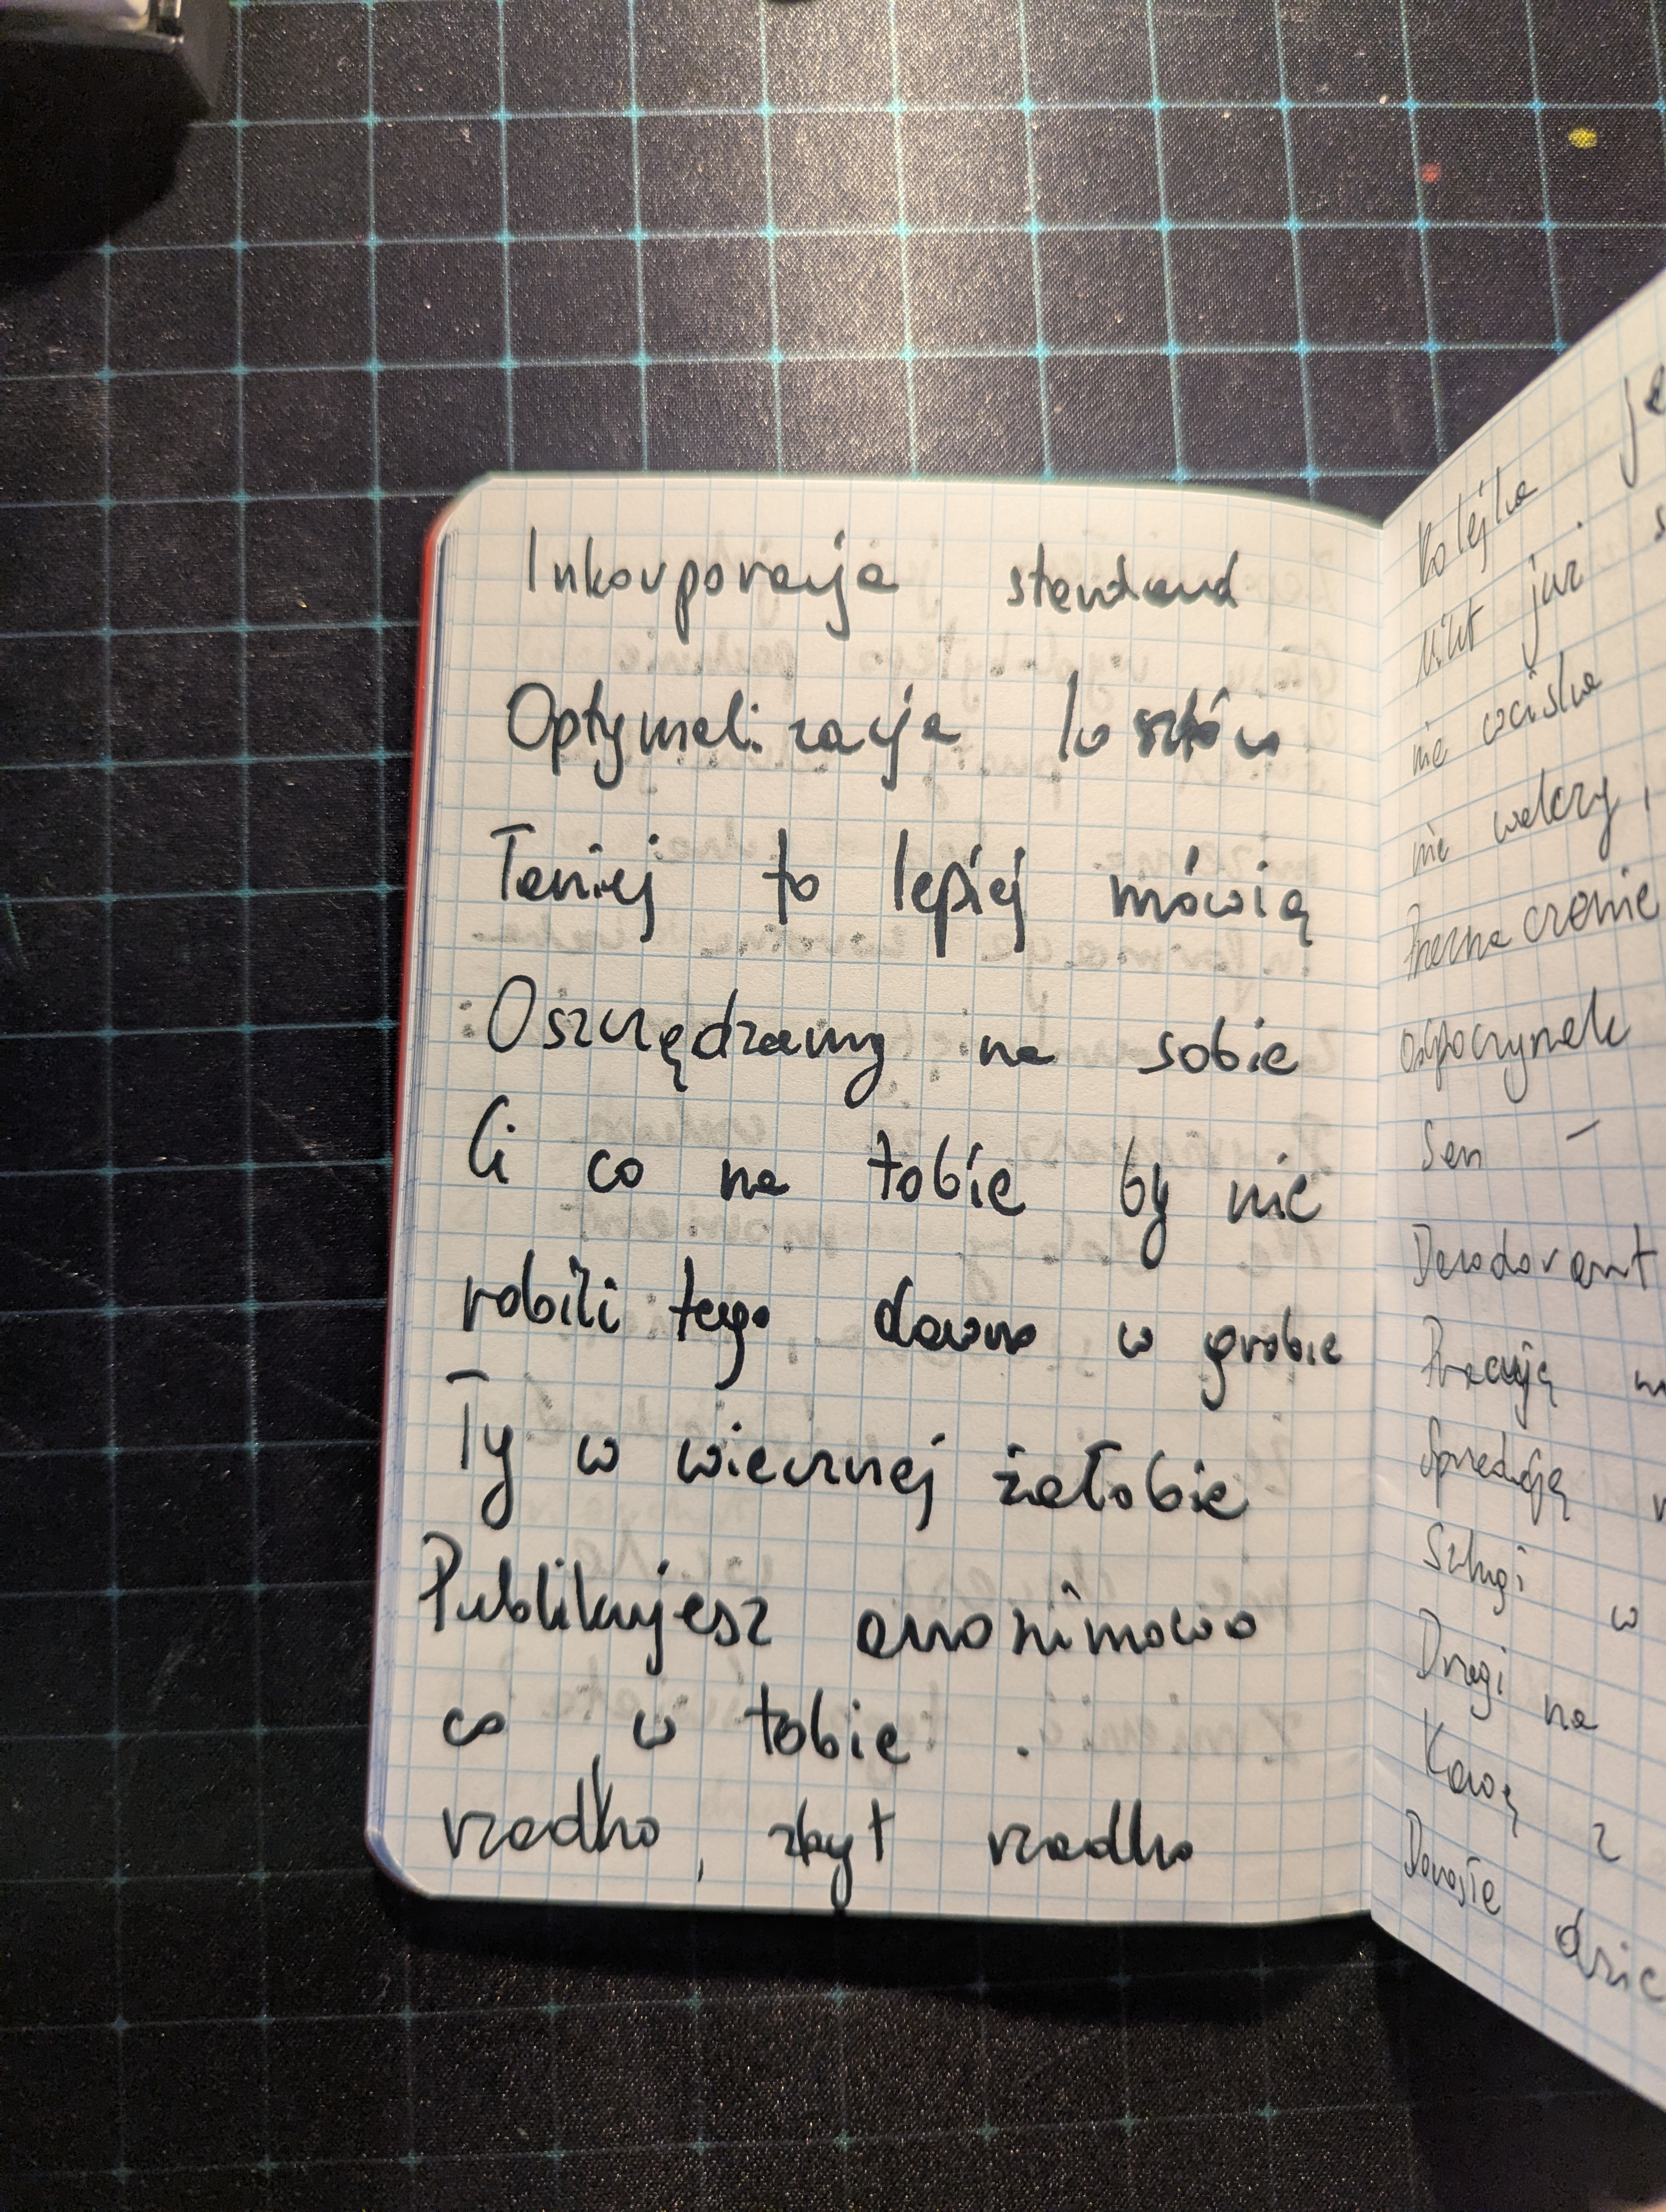 Inkorporacja standard
Optymalizacja kosztów
Taniej to lepiej mówią
Oszczędzamy na sobie
Ci co na tobie by nie
robili tego dawno w grobie
Ty w wiecznej żałobie
Publikujesz anonimowo
co w tobie .
rzadko, zbyt rzadko
Kolejka
Nikt już
nie wciska
nie walczy,
Przeznaczenie
odpoczynek
Sen –
Dezodorant
Pracują
Sprzedają
Szlugi w
Drugi na
Kawę z